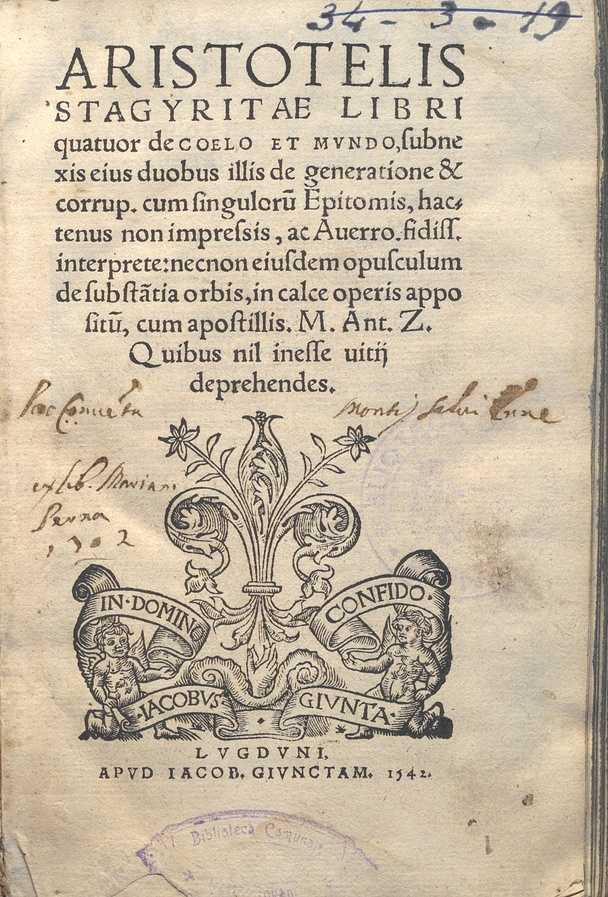 34 - 3 - 19
ARISTOTELIS
STAGYRITAE LIBRI
quatuor de COELO ET MVNDO, subne
xis eius duobus illis de generatione &
corrup. cum singulorū Epitomis, hac-
tenus non impressis, ac Auerro. fidiss.
interprete: necnon eiusdem opusculum
de substātia orbis, in calce operis appo
sitū, cum apostillis. M. Ant. Z.
Quibus nil inesse uitij
deprehendes.
Montis
ex lib. Mariani
Perna
1702
IN·DOMINO CONFIDO·
·IACOBUS GIVNTA·
LVGDVNI,
APVD IACOB. GIVNCTAM. 1542.
Biblioteca Comunale